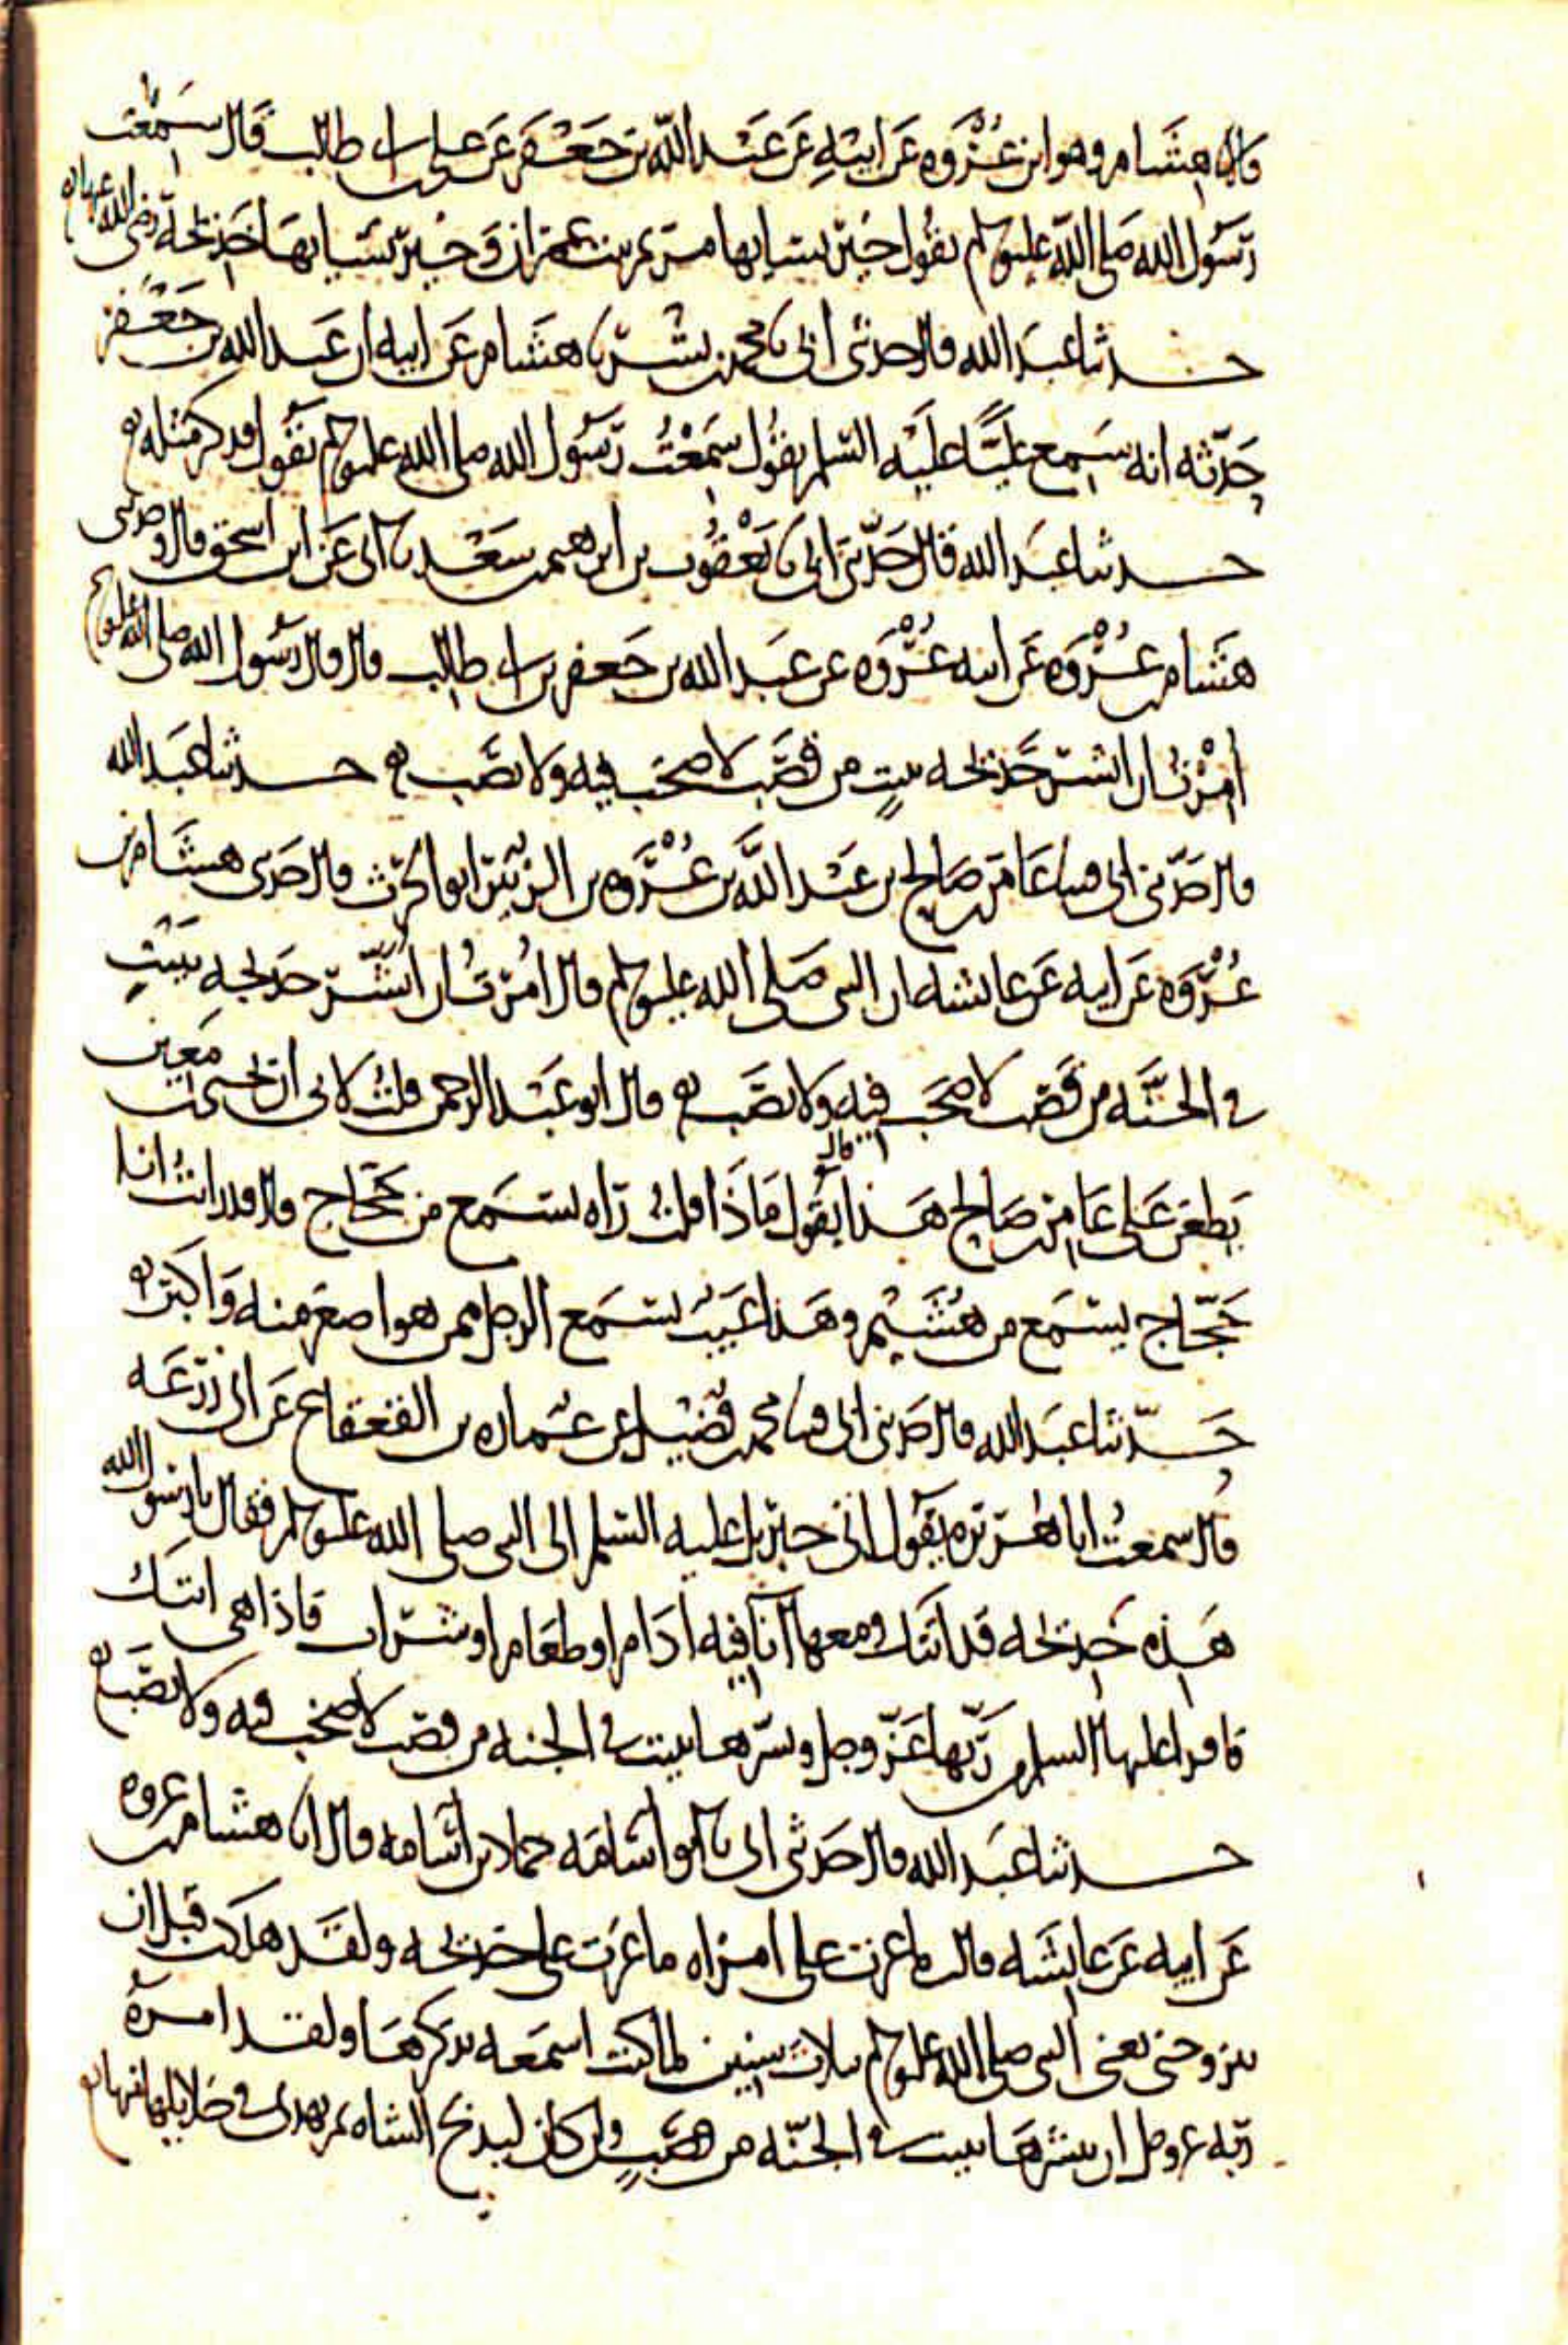 قال نا هشام وهو ابن عروة عن ابيه عن عبد الله بن جعفر عن علي بن ابي طالب قال سمعت
رسول الله صلى الله عليه وسلم يقول خير نسايها مريم بنت عمران وخير نسايها خديجة رضي الله عنها
حدثنا عبد الله قال حدثني ابي نا محمد بن بشر نا هشام عن ابيه ان عبد الله بن جعفر
حدثه انه سمع عليا عليه السلم يقول سمعت رسول الله صلى الله عليه وسلم يقول فذكر مثله
حدثنا عبد الله قال حدثني ابي نا يعقوب بن ابرهيم بن سعد نا ابي عن ابن اسحق قال وحدثني
هشام بن عروة عن ابيه عروة عن عبد الله بن جعفر بن ابي طالب قال قال رسول الله صلى الله عليه وسلم
امرت ان ابشر خديجه ببيت من قصب لا صخب فيه ولا نصب حدثنا عبد الله
قال حدثني ابي قثنا عامر بن صالح بن عبد الله بن عروة بن الزبير ابو الحرث قال حدثني هشام بن
عروة عن ابيه عن عايشه ان النبي صلى الله عليه وسلم قال امرت ان ابشر خديجه ببيت
في الجنه من قصب لا صخب فيه ولا نصب قال ابو عبد الرحمن قلت لابي ان يحيى بن معين
يطعن على عامر بن صالح هذا قال يقول ماذا قلت راه يستمع من حجاج قال قد رايت انا
حجاج يستمع من هشيم وهذا عيب يستمع الرجل ممن هو اصغر منه واكبر
حدثنا عبد الله قال حدثني ابي قثنا محمد بن فضيل عن عماره بن القعقاع عن ابي زرعه
قال سمعت ابا هريره يقول اتى جبريل عليه السلم الى النبي صلى الله عليه وسلم فقال يا رسول الله
هذه خديجه قد اتتك ومعها انا فيه ادام او طعام او شراب فاذا هي اتتك
فاقرا عليها السلم من ربها عز وجل وبشرها ببيت في الجنه من قصب لا صخب فيه ولا نصب
حدثنا عبد الله قال حدثني ابي نا ابو اسامه حماد بن اسامه قال انا هشام بن عروه
عن ابيه عن عايشه قالت ما غرت على امراه ما غرت على خديجه ولقد هلكت قبل ان
يتزوجني يعني النبي صلى الله عليه وسلم بثلاث سنين لما كنت اسمعه يذكرها ولقد امره
ربه عز وجل ان يبشرها ببيت في الجنه من قصب وان كان ليذبح الشاه ثم يهدي في خلايلها منها